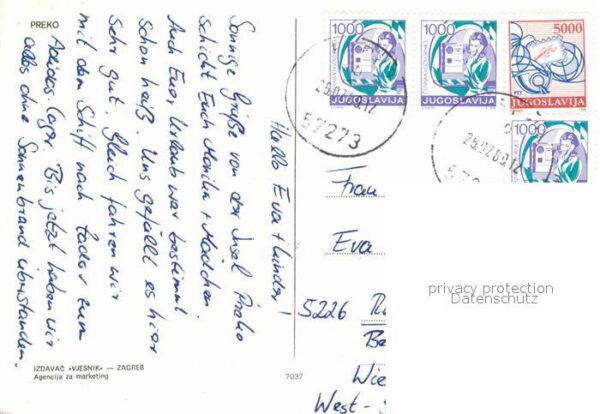 PREKO
Hallo Eva + Kinder!
Sonnige Grüße von der Insel Preko
schickt Euch Monika + Mädchen.
Auch Euer Urlaub war bestimmt
schon heiß. Uns gefällt es hier
sehr gut. Gleich fahren wir
mit dem Schiff nach Zadar zum
Adidas Lager. Bis jetzt haben wir
alles ohne Sonnenbrand überstanden.
IZDAVAČ «VJESNIK» — ZAGREB
Agencija za marketing
7037
1000
JUGOSLAVIJA
1000
JUGOSLAVIJA
5000
PTT
JUGOSLAVIJA
1000
JUGOSLAVIJA
57273
Frau
Eva
5226
West-
privacy protection
Datenschutz